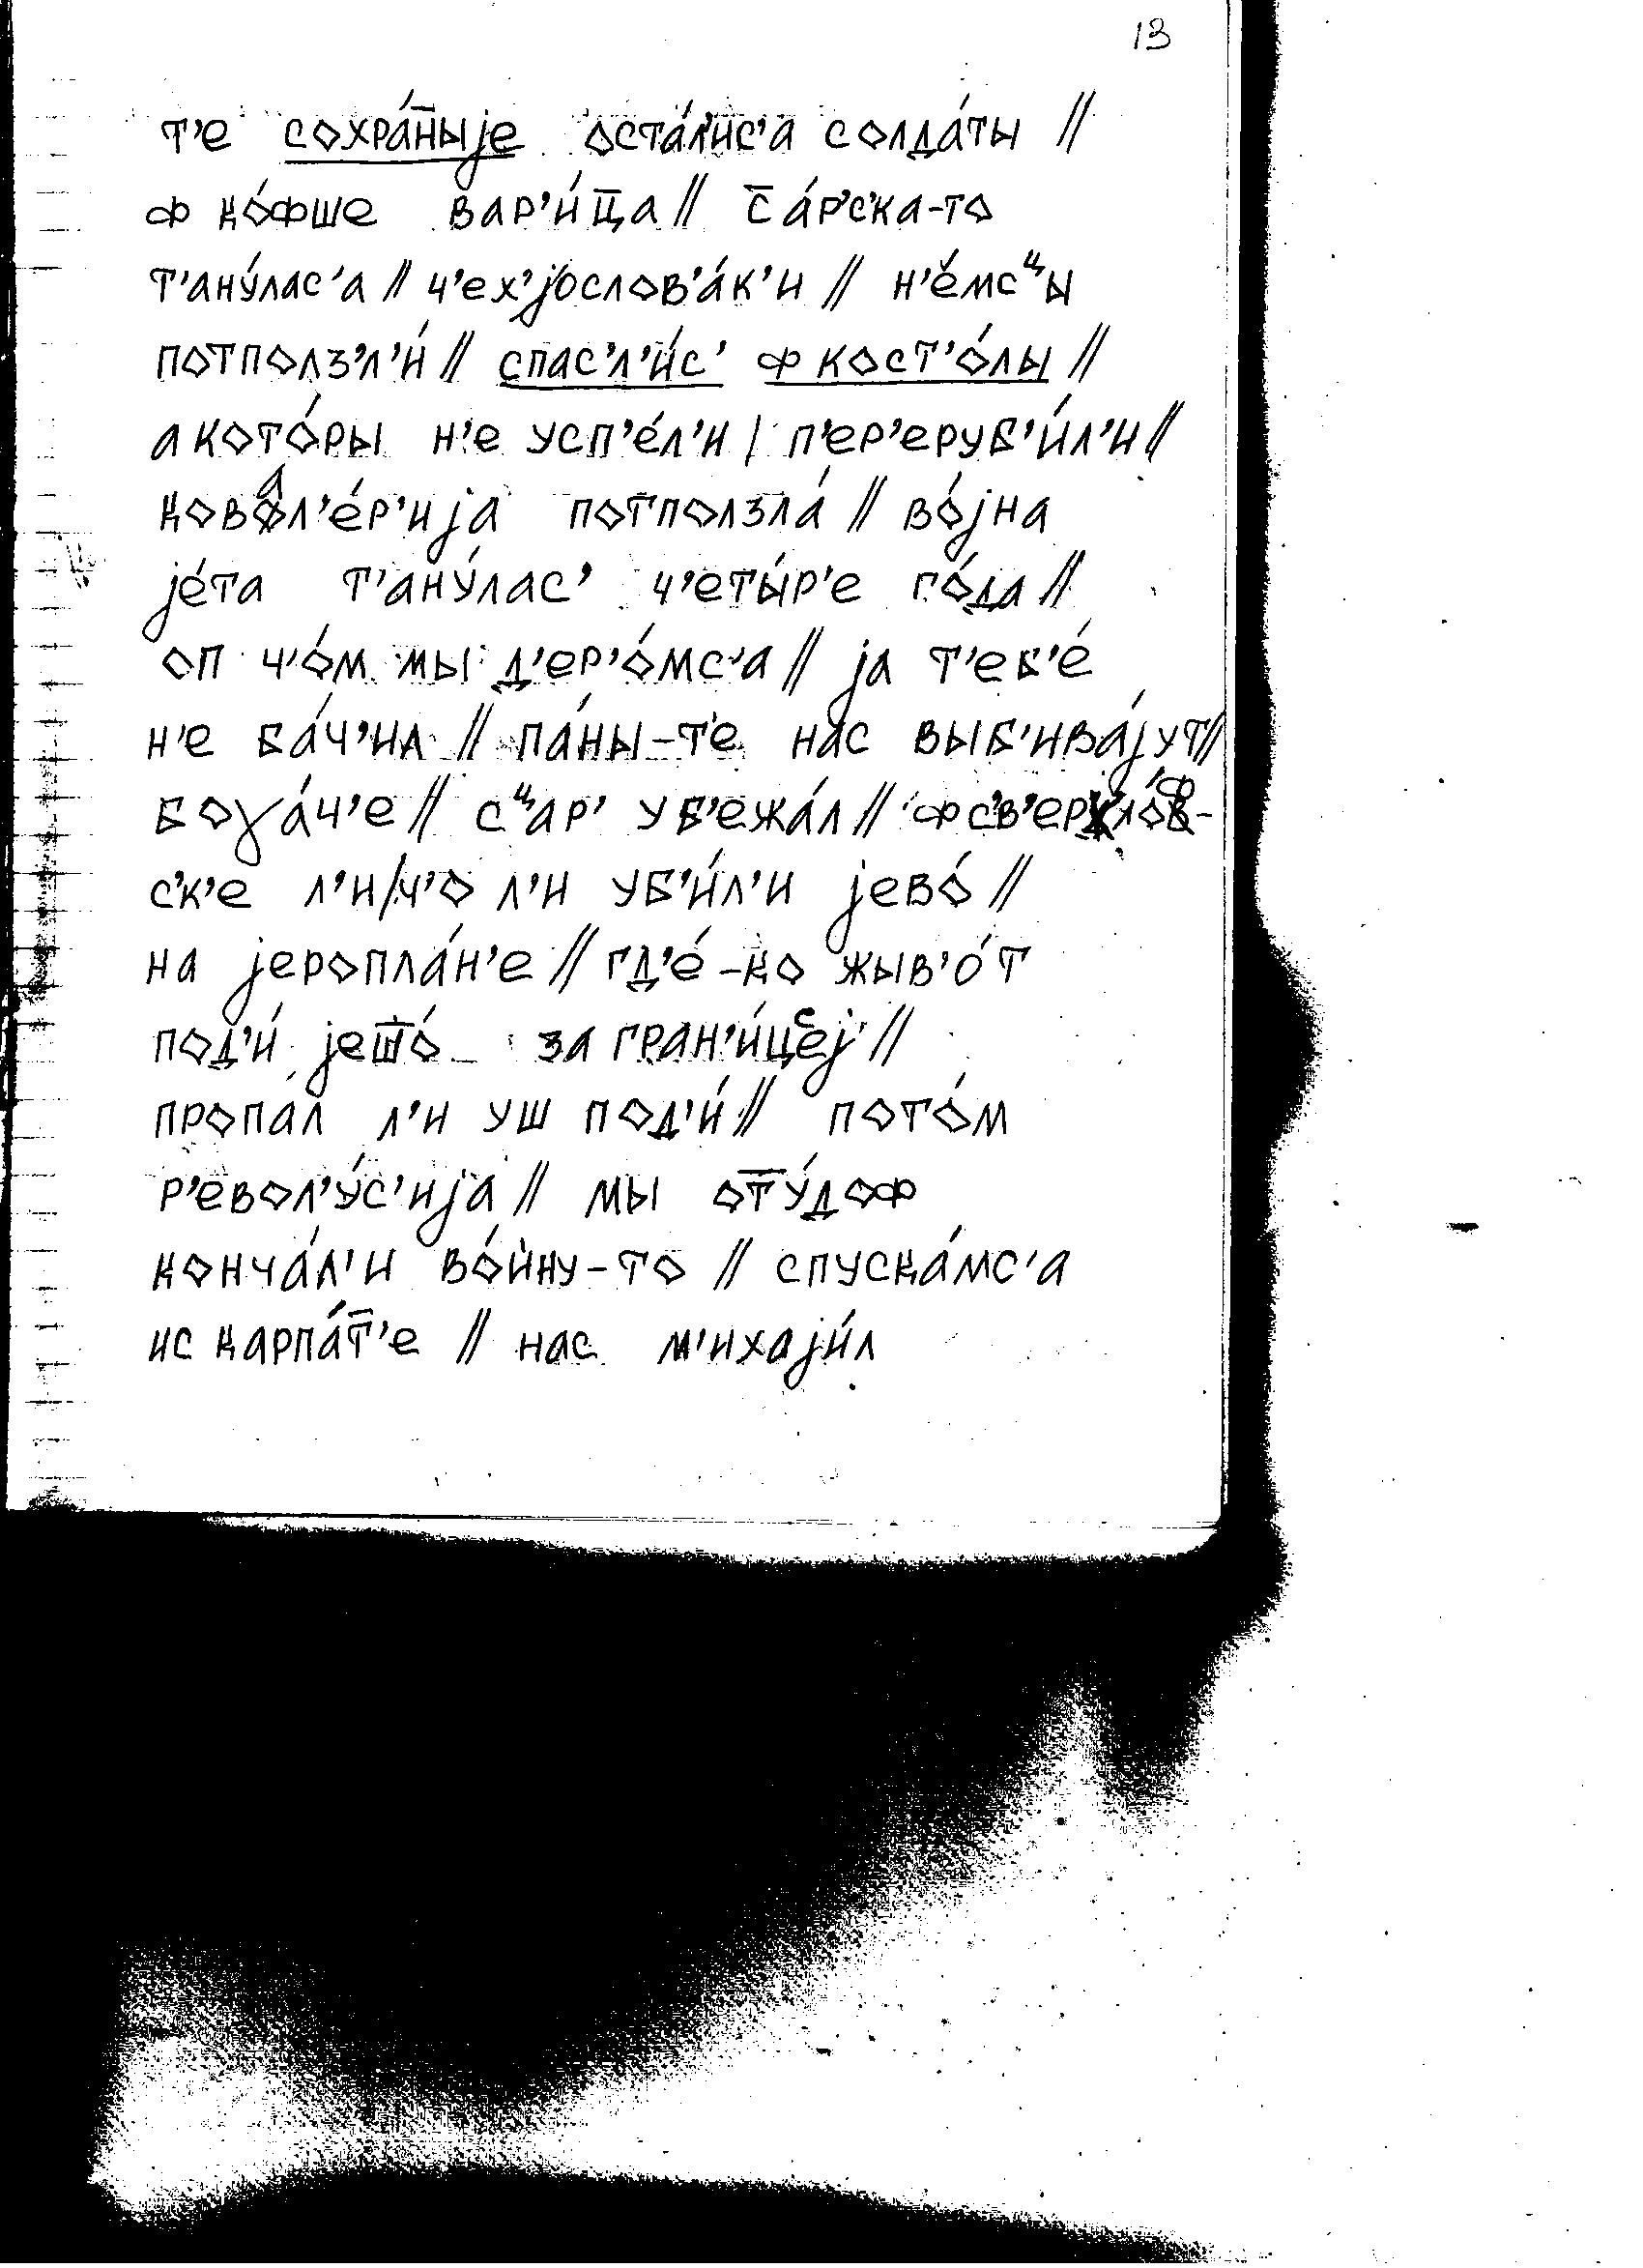 13
т'е сохра́н̄ыје оста́л'ис'а солда́ты //
ф ко́фше вар'и́ц̄а // с̄а́р'с'ка-то
т'ану́лас'а // ч'ех'јослов'а́к'и // н'е́мсᶣы
потползл'и́ // спас'л'и́с' ф кост'о́лы //
а кото́ры н'е усп'е́л'и / п'ер'еруб'и́л'и //
ковал'е́р'ија потползла́ // во́јна
је́та т'ану́лас' ч'еты́р'е го́да //
оп ч'о́м мы д'ер'о́мс'а // ја т'еб'е́
н'е ба́ч'ил // па́ны-т'е нас выб'ива́јут //
боɣа́ч'е // сᶣар' уб'ежа́л // ф с'в'ерлόф-
ск'е л'и/ч'о л'и уб'и́л'и јево́ //
на јеропла́н'е // гд'е́-ко жыв'о́т
под'и́ јеш̄о́ за гран'и́цсеј //
пропа́л л'и уш под'и́ // пото́м
р'евол'у́с'ија // мы от̄у́доф
конча́л'и во́йну-то // спуска́мс'а
ис карпа́т̄'е // нас м'ихаји́л